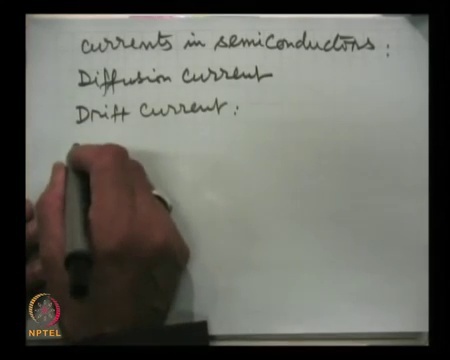 currents in semiconductors:
Diffusion current
Drift current:
NPTEL